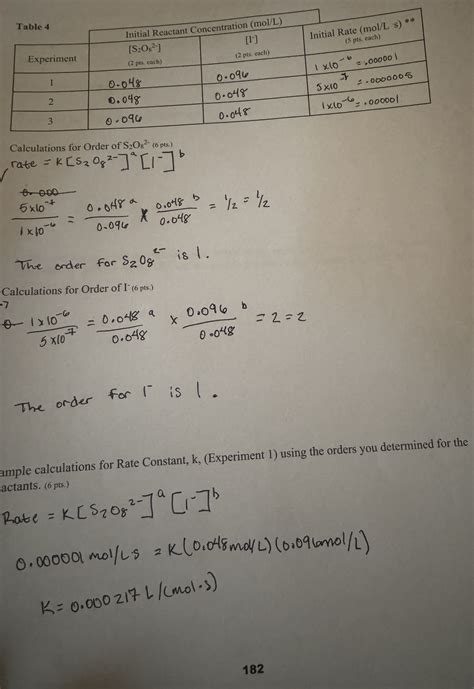 Table 4
Initial Reactant Concentration (mol/L)
Initial Rate (mol/L·s) **
(5 pts. each)
Experiment
[S₂O₈²⁻]
(2 pts. each)
[I⁻]
(2 pts. each)
1 0.048 0.096 1 x10⁻⁶ = .000001
2 0.048 0.048 5x10⁻⁷ = .0000005
3 0.096 0.048 1x10⁻⁶ = .000001
Calculations for Order of S₂O₈²⁻ (6 pts.)
rate = K[S₂O₈²⁻]ᵃ[I⁻]ᵇ
5x10⁻⁷/1x10⁻⁶ = 0.048/0.096 ᵃ x 0.048/0.048 ᵇ = 1/2 = 1/2
The order for S₂O₈²⁻ is 1.
Calculations for Order of I⁻ (6 pts.)
1x10⁻⁶/5x10⁻⁷ = 0.048/0.048 ᵃ x 0.096/0.048 ᵇ = 2 = 2
The order for I⁻ is 1.
ample calculations for Rate Constant, k, (Experiment 1) using the orders you determined for the
actants. (6 pts.)
Rate = K[S₂O₈²⁻]ᵃ[I⁻]ᵇ
0.000001 mol/L·s = K(0.048mol/L)(0.096mol/L)
K = 0.000217 L/(mol·s)
182